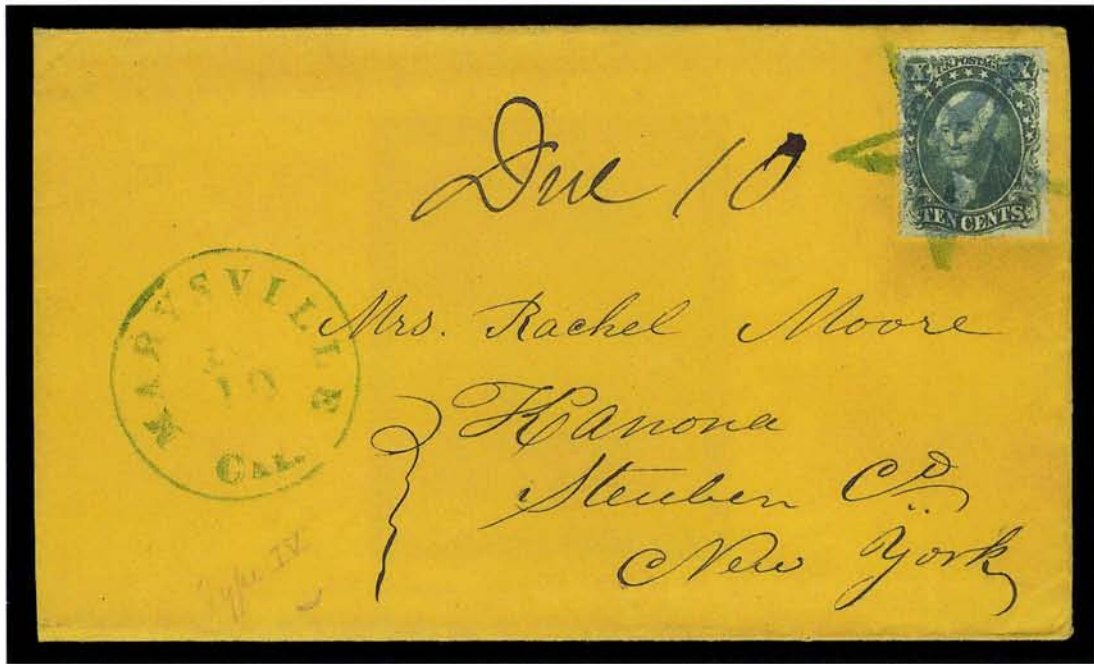 X U.S. POSTAGE X
TEN CENTS
Due 10
MARYSVILLE
10
CAL.
Mrs. Rachel Moore
Kanona
Steuben Co.
New York
Type IV